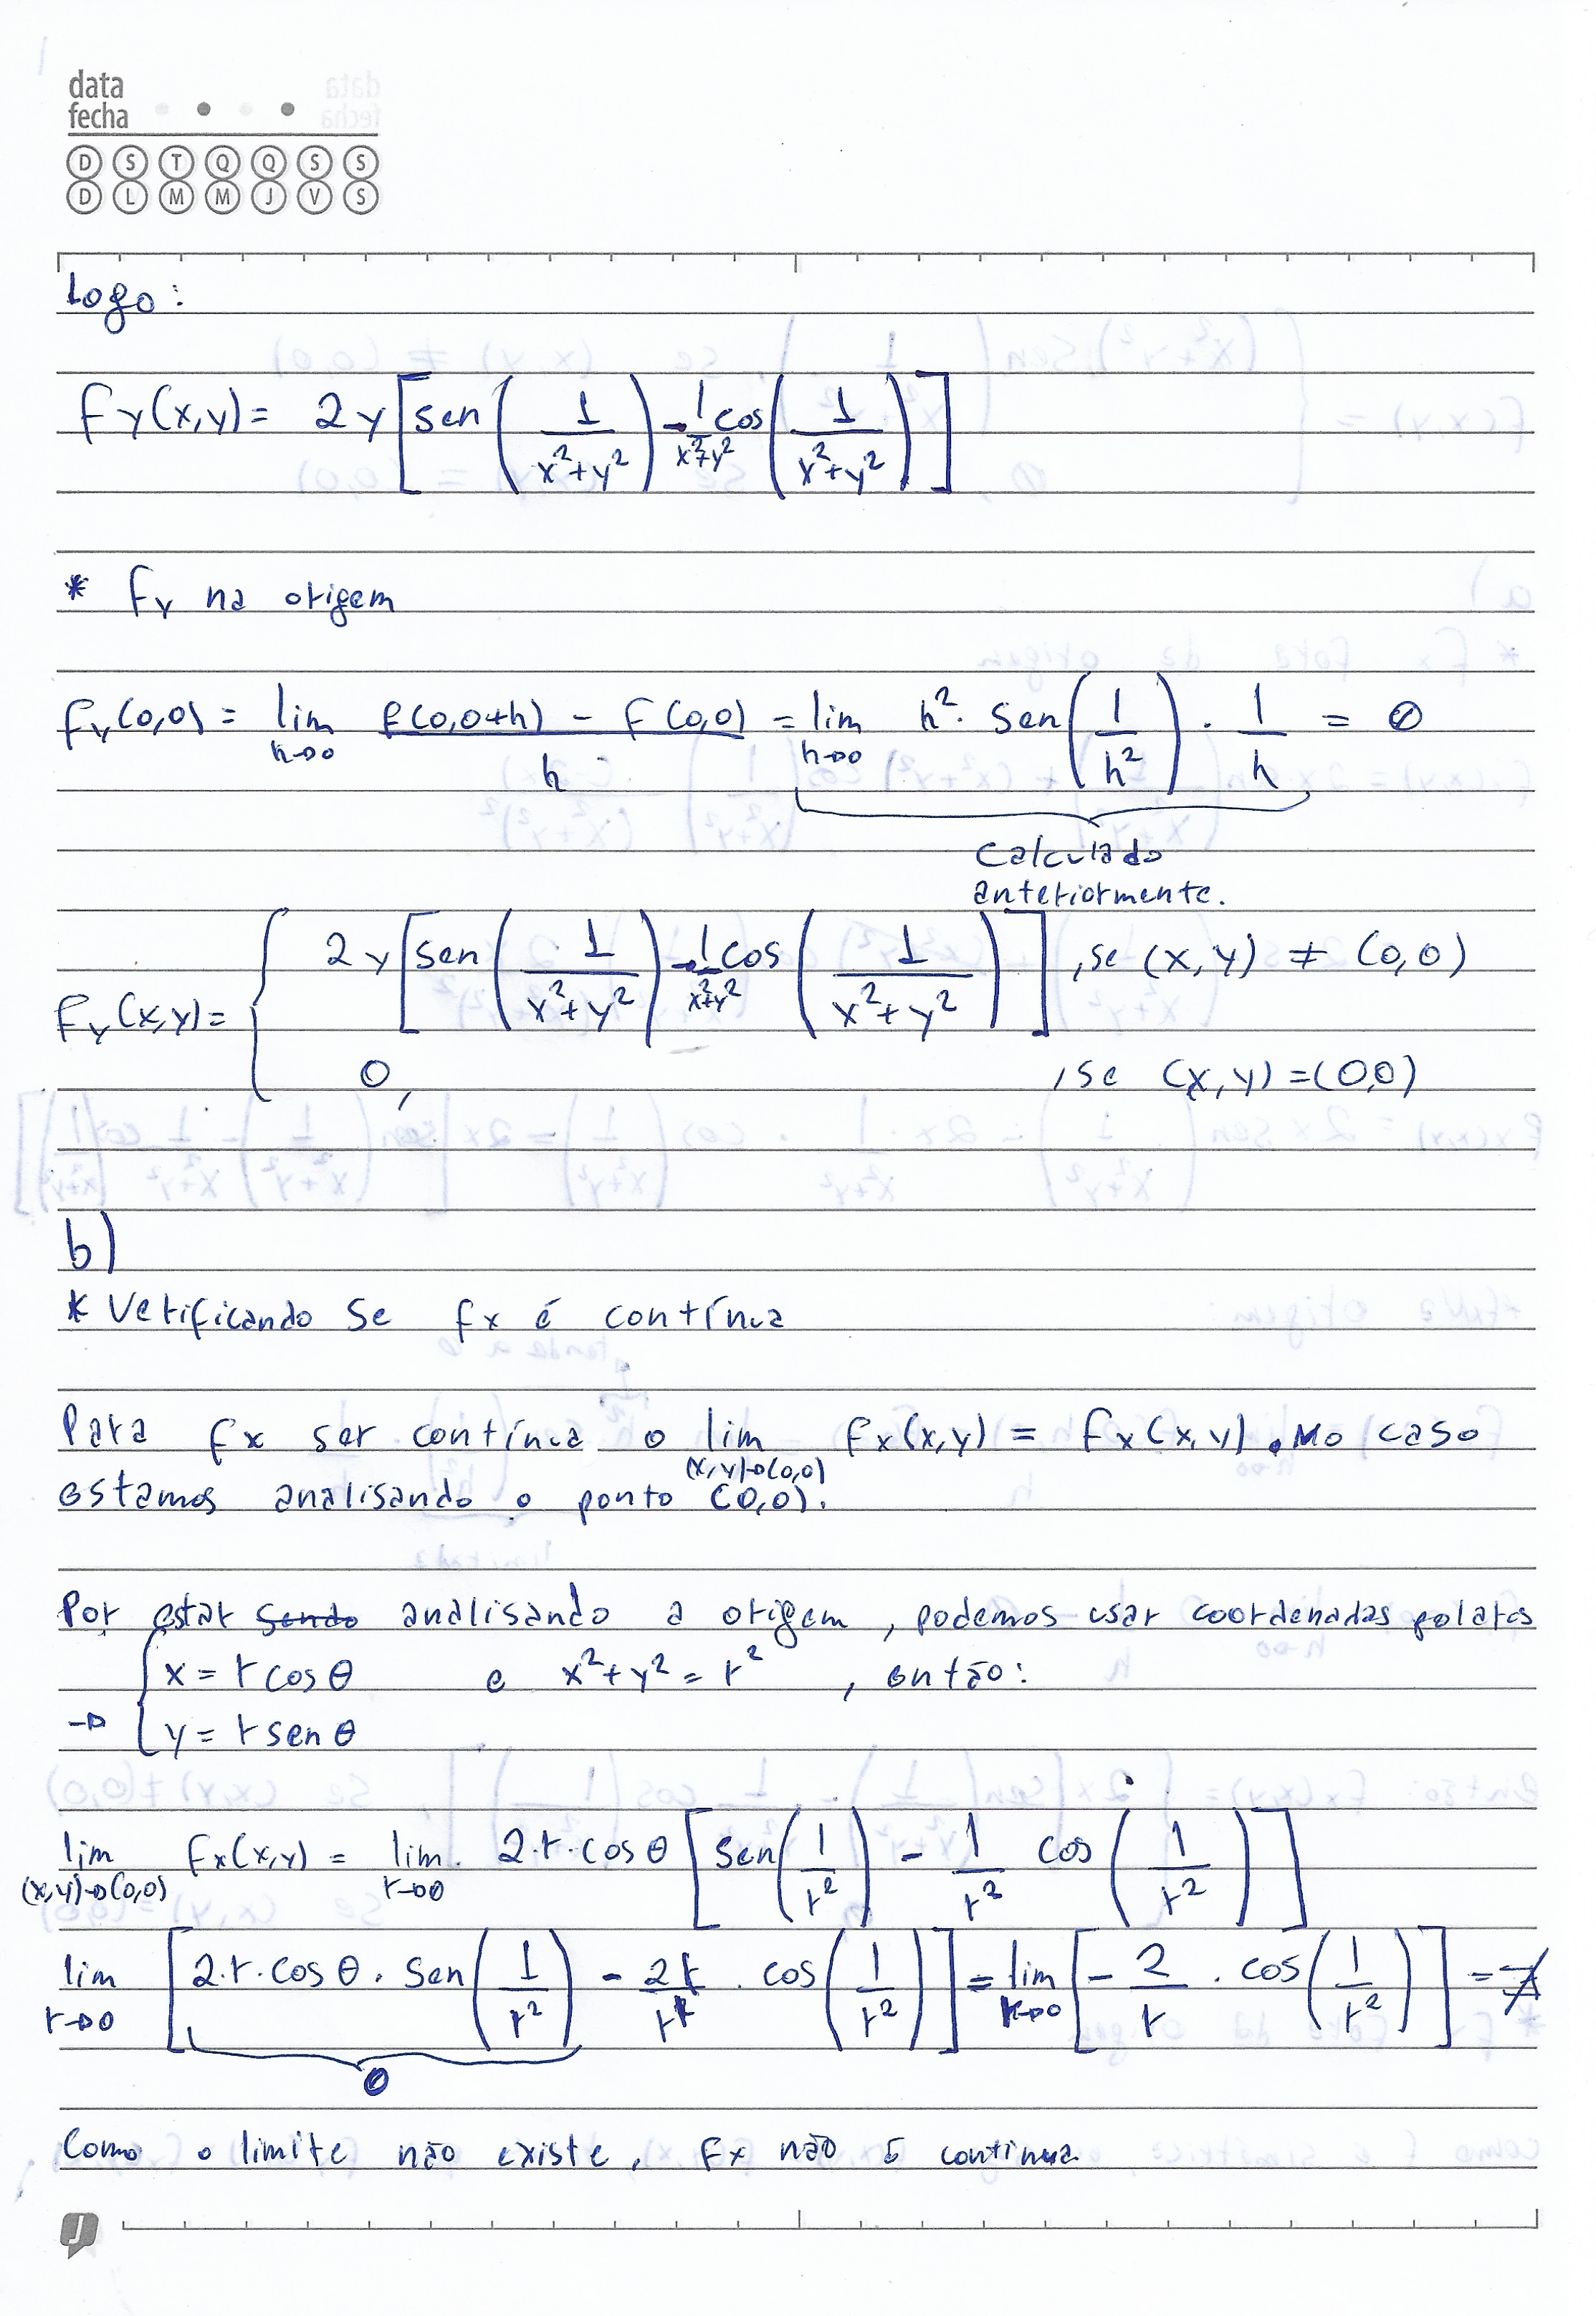 data
fecha
D S T Q Q S S
D L M M J V S
Logo:
fy(x,y) = 2y [sen (1/(x²+y²)) - 1/(x²+y²) cos (1/(x²+y²))]
* fy na origem
fy(0,0) = lim h→0 (f(0,0+h) - f(0,0))/h = lim h→0 h² · sen (1/h²) · 1/h = 0
Calculado
anteriormente.
fy(x,y) = { 2y [sen (1/(x²+y²)) - 1/(x²+y²) cos (1/(x²+y²))] , se (x,y) ≠ (0,0)
0, , se (x,y) = (0,0)
b)
* Verificando se fx é contínua
Para fx ser contínua o lim (x,y)→(0,0) fx(x,y) = fx(x,y). No caso
estamos analisando o ponto (0,0).
Por estar sendo analisando a origem, podemos usar coordenadas polares
→ { x = r cos θ e x²+y² = r² , então:
y = r sen θ
lim (x,y)→(0,0) fx(x,y) = lim r→0 2·r·cos θ [sen (1/r²) - 1/r² cos (1/r²)]
lim r→0 [2·r·cos θ · sen (1/r²) - 2r/r² · cos (1/r²)] = lim r→0 [- 2/r · cos (1/r²)] = ∄
0
Como o limite não existe, fx não é contínua.